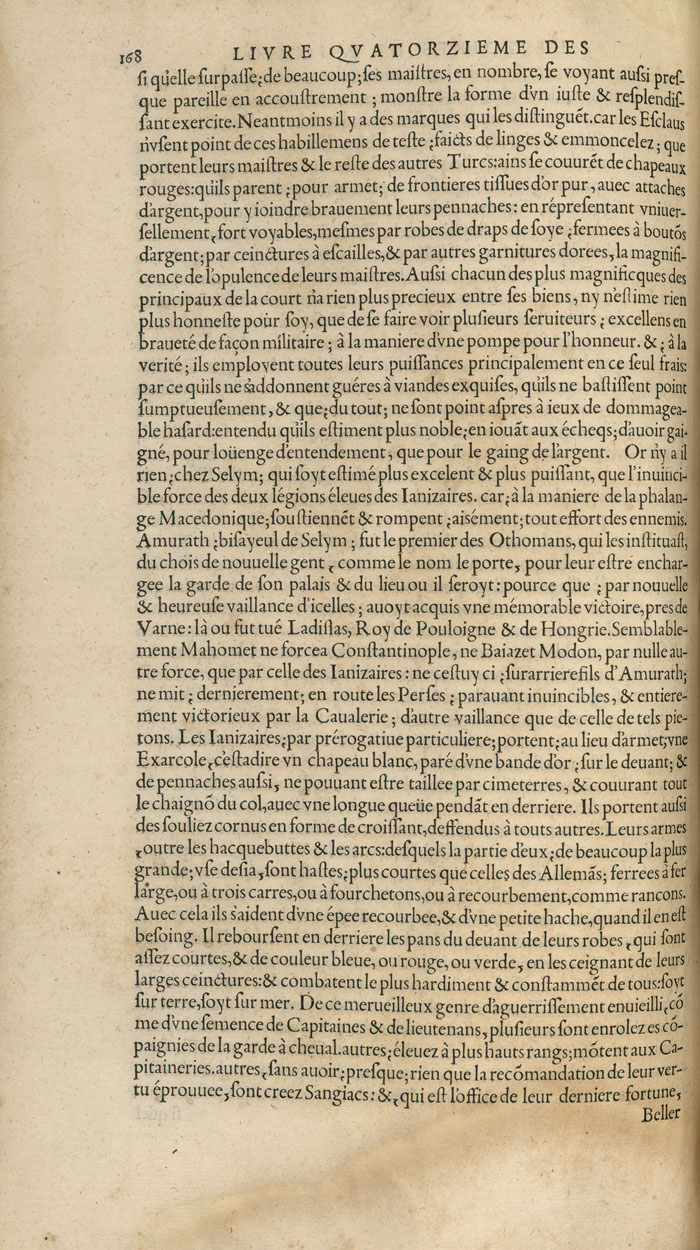 168 LIVRE QVATORZIEME DES
ſi qu'elle ſurpaſſe;de beaucoup;ſes maiſtres,en nombre,ſe voyant auſsi preſ-
que pareille en accouſtrement ; monſtre la forme d'vn iuſte & reſplendiſ-
ſant exercite.Neantmoins il y a des marques qui les diſtinguẽt.car les Eſclaus
n'vſent point de ces habillemens de teſte ;faicts de linges & emmoncelez ; que
portent leurs maiſtres & le reſte des autres Turcs:ains ſe couurẽt de chapeaux
rouges:qu'ils parent ;pour armet; de frontieres tiſſues d'or pur, auec attaches
d'argent,pour y ioindre brauement leurs pennaches: en répreſentant vniuer-
ſellement,fort voyables,meſmes par robes de draps de ſoye ;fermees à boutõs
d'argent;par ceinctures à eſcailles,& par autres garnitures dorees,la magnifi-
cence de l'opulence de leurs maiſtres.Auſsi chacun des plus magnificques des
principaux de la court n'a rien plus precieux entre ſes biens, ny n'eſtime rien
plus honneſte poùr ſoy, que de ſe faire voir pluſieurs ſeruiteurs ; excellens en
braueté de façon militaire ; à la maniere d'vne pompe pour l'honneur. & ; à la
verité ; ils employent toutes leurs puiſſances principalement en ce ſeul frais:
par ce qu'ils ne s'addonnent guéres à viandes exquiſes, qu'ils ne baſtiſſent point
ſumptueuſement,& que;du tout; ne ſont point aſpres à ieux de dommagea-
ble haſard:entendu qu'ils eſtiment plus noble;en iouãt aux écheqs;d'auoir gai-
gné, pour loüenge d'entendement, que pour le gaing de l'argent. Or n'y a il
rien;chez Selym; qui ſoyt eſtimé plus excelent & plus puiſſant, que l'inuinci-
ble force des deux légions éleues des Ianizaires. car;à la maniere de la phalan-
ge Macedonique;ſouſtiennẽt & rompent ;aisément;tout effort des ennemis.
Amurath ;biſayeul de Selym ; fut le premier des Othomans, qui les inſtituaſt,
du chois de nouuelle gent , comme le nom le porte, pour leur eſtre enchar-
gee la garde de ſon palais & du lieu ou il ſeroyt: pource que ; par nouuelle
& heureuſe vaillance d'icelles ; auoyt acquis vne mémorable victoire,pres de
Varne: là ou fut tué Ladiſlas, Roy de Pouloigne & de Hongrie.Semblable-
ment Mahomet ne forcea Conſtantinople, ne Baiazet Modon, par nulle au-
tre force, que par celle des Ianizaires : ne ceſtuy ci ;ſurarrierefils d'Amurath;
ne mit ; dernierement; en route les Perſes ; parauant inuincibles, & entiere-
ment victorieux par la Caualerie ; d'autre vaillance que de celle de tels pie-
tons. Les Ianizaires;par prérogatiue particuliere;portent;au lieu d'armet;vne
Exarcole,c'eſtadire vn chapeau blanc, paré d'vne bande d'or ; ſur le deuant; &
de pennaches auſsi, ne pouuant eſtre taillee par cimeterres, & couurant tout
le chaignõ du col,auec vne longue queüe pendãt en derriere. Ils portent auſsi
des ſouliez cornus en forme de croiſſant,deffendus à touts autres.Leurs armes
,outre les hacquebuttes & les arcs:deſquels la partie d'eux;de beaucoup la plus
grande;vſe deſia,ſont haſtes;plus courtes que celles des Allemãs; ferrees à fer
large,ou à trois carres,ou à fourchetons,ou à recourbement,comme rancons.
Auec cela ils s'aident d'vne épee recourbee,& d'vne petite hache,quand il en eſt
beſoing. Il rebourſent en derriere les pans du deuant de leurs robes , qui ſont
aſſez courtes,& de couleur bleue, ou rouge, ou verde, en les ceignant de leurs
larges ceinctures:& combatent le plus hardiment & conſtammẽt de tous:ſoyt
ſur terre,ſoyt ſur mer. De ce merueilleux genre d'aguerriſſement enuieilli,cõ
me d'vne ſemence de Capitaines & de lieutenans, pluſieurs ſont enrolez es cõ-
paignies de la garde à cheual.autres;éleuez à plus hauts rangs;mõtent aux Ca-
pitaineries.autres,ſans auoir;preſque;rien que la recõmandation de leur ver-
tu éprouuee,ſont creez Sangiacs: &,qui eſt l'office de leur derniere fortune,
Beller